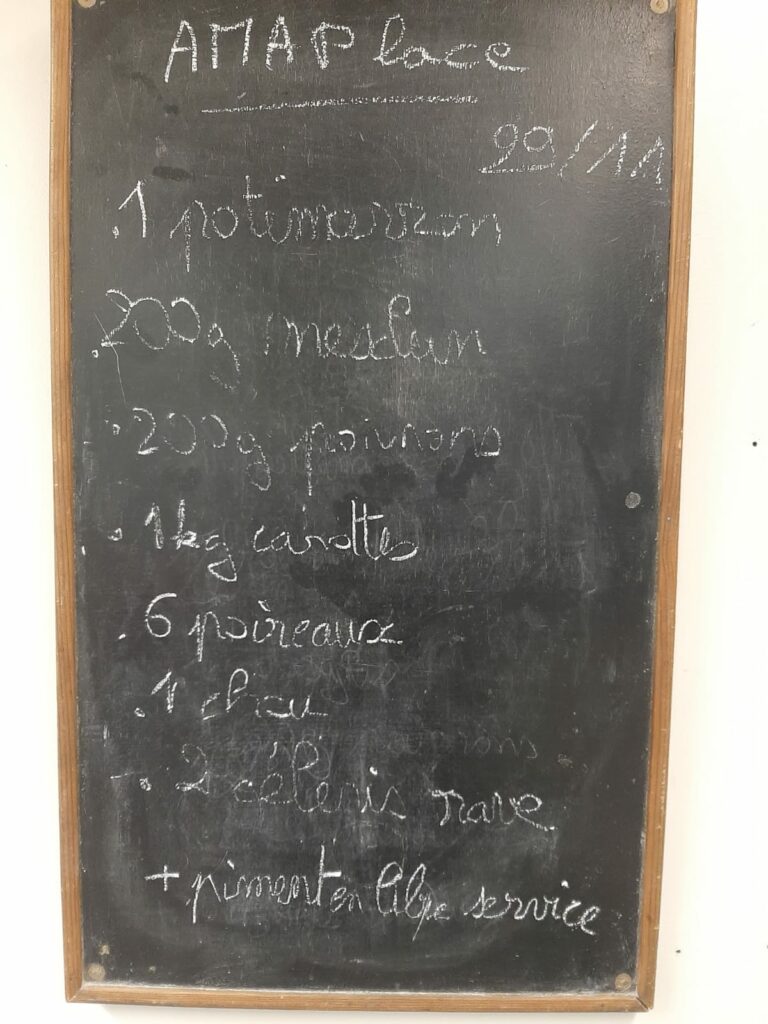 AMAPlace
29/11
.1 potimarron
.200g mesclun
.200g poivrons
.1kg carottes
.6 poireaux
.1 chou
-.2 céleris rave
+ piment en libre service